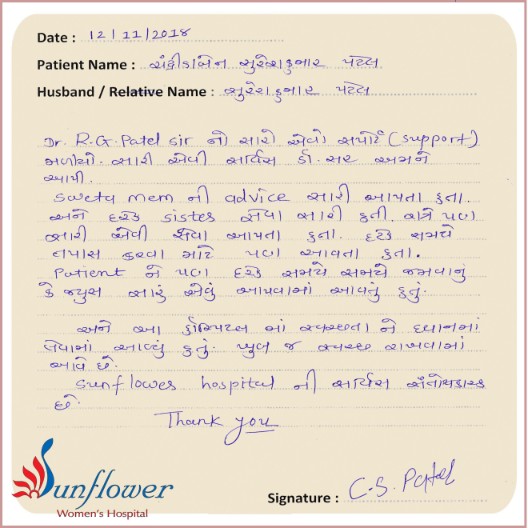 Date : 12/11/2018
Patient Name : ચંદ્રીકાબેન સુરેશકુમાર પટેલ
Husband / Relative Name : સુરેશકુમાર પટેલ
Dr. R.G. Patel sir નો સારો એવો સપોર્ટ (support)
મળ્યો. સારી એવી સર્વિસ ડો. સર અમને
આપી.
sweta mem ની advice સારી આપતા હતા.
અને દરેક sister સેવા સારી હતી. રાત્રે પણ
સારી એવી સેવા આપતા હતા. દરેક સમયે
તપાસ કરવા માટે પણ આવતા હતા.
Patient ને પણ દરેક સમયે સમયે જમવાનું
કે જ્યુસ સારું એવું આપવામાં આવતું હતું.
અને આ હોસ્પિટલ માં સ્વચ્છતા ને ધ્યાનમાં
લેવામાં આવ્યું હતું. ખુબ જ સ્વચ્છ રાખવામાં
આવે છે.
Sunflower hospital ની સર્વિસ સંતોષકારક
છે.
Thank you
Sunflower
Women's Hospital
Signature : C.S. Patel